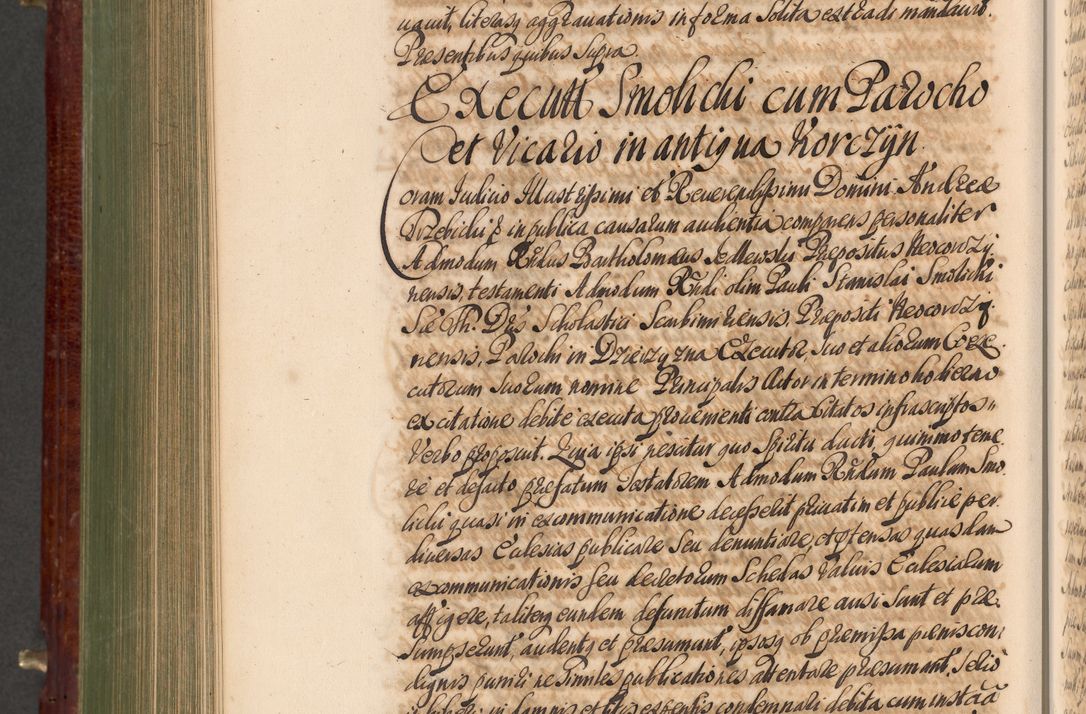 uauit, literasq aggrauationis in forma Solita extradi mandauit.
Presentibus quibus Supra.
Executt Smolichi cum Parocho
et Vicario in antiqua Korczÿn.
Coram Judicio Illustrissimi et Reuerendissimi Domini Andreæ
Trzebicki &c in publica causarum audientia comparens personaliter
Admodum Rndus Bartholomæus Prepositus Neocorczÿ
nensis, testamenti Admodum Rndi olim Pauli Stanislai Smolichi
Sæ Th. Drs Scholastici Scarbimirensis, Præpositi Neocorczÿ
nensis, Parochi in Executor, Suo et aliorum Coexe
cutorum Suorum nomine Principalis Actor in termino hodierno
ex citatione debite executa proueniente contra Citatos infrascriptos
Verbo proposuit. Quia ipsi nescitur quo Spiritu ducti, quimmo teme
re et defacto præfatum Testatorem Admodum Rndum Paulum Smo
lichi quasi in excommunicatione decesserit priuatim et publice per
diuersas Ecclesias publicare Seu denuntiare, et prætensas quasdam
excommunicationis seu decretorum Schedas Valuis Ecclesiarum
affigere, taliterq eundem defunctum diffamare ausi Sunt et præ
Sumpserunt, audentq et præsumunt, ipsosq ob præmissa pænis con
dignis puniri ne Similes publicationes attentare præsumant,
in damnis et litis expensis condemnari debita cum instaā